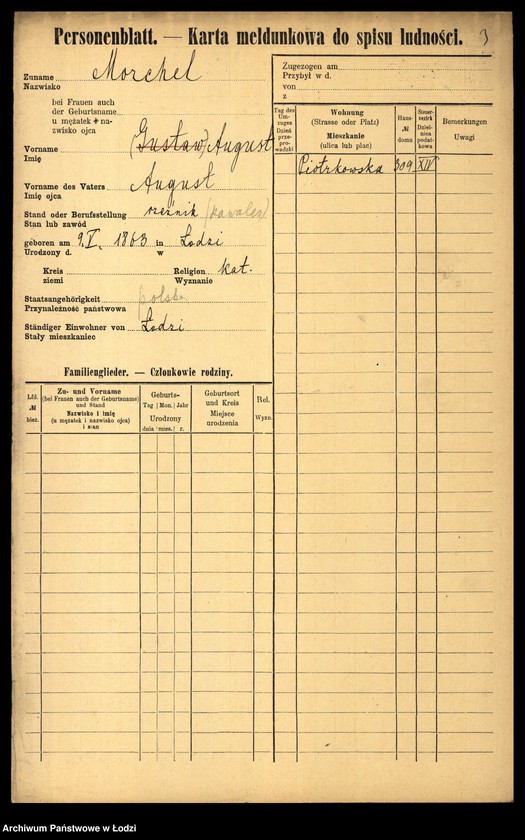 Personenblatt. — Karta meldunkowa do spisu ludności.
3
Zuname Morchel
Nazwisko
bei Frauen auch
der Geburtsname
u mężatek i na-
zwisko ojca
Vorname (Gustaw) August
Imię
Vorname des Vaters August
Imię ojca
Stand oder Berufsstellung rzeźnik (kawaler)
Stan lub zawód
geboren am 9.V. 1863 in Łodzi
Urodzony d. w
Kreis Religion kat.
ziemi Wyznanie
Staatsangehörigkeit polska
Przynależność państwowa
Ständiger Einwohner von Łodzi
Stały mieszkaniec
Familienglieder. — Członkowie rodziny.
Lfd. № bież.
Zu- und Vorname
(bei Frauen auch der Geburtsname)
und Stand
Nazwisko i imię
(u mężatek i nazwisko ojca)
i stan
Geburts-
Tag Mon. Jahr
Urodzony
dnia mies. r.
Geburtsort
und Kreis
Miejsce
urodzenia
Rel.
Wyzn.
Zugezogen am
Przybył w d.
von
z
Tag des
Um-
zuges
Dzień
prze-
pro-
wadzki
Wohnung
(Strasse oder Platz)
Mieszkanie
(ulica lub plac)
Haus-
№
domu
Steuer-
bezirk
Dziel-
nica
podat-
kowa
Bemerkungen
Uwagi
Piotrkowska 309 XIV
Archiwum Państwowe w Łodzi